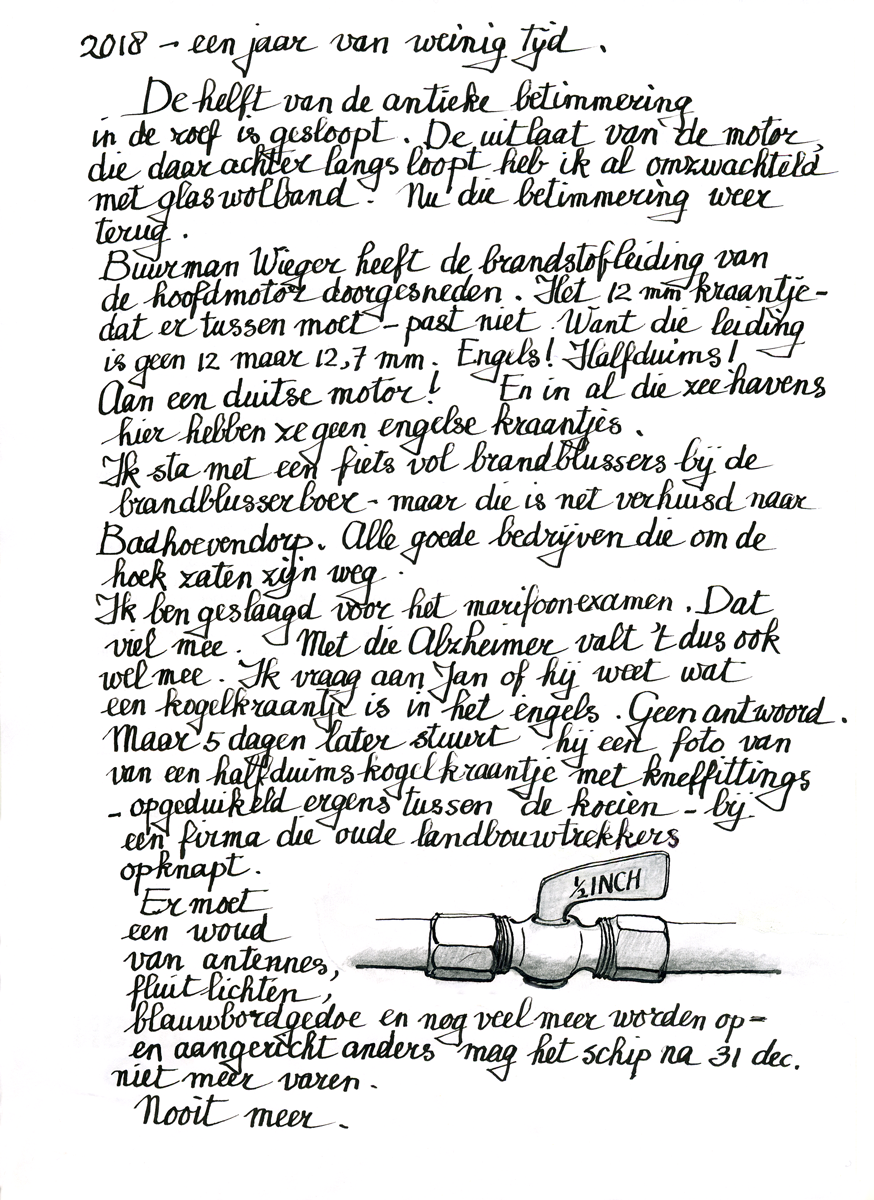 2018 - een jaar van weinig tijd.
De helft van de antieke betimmering
in de roef is gesloopt. De uitlaat van de motor,
die daar achter langs loopt heb ik al omzwachteld
met glaswolband. Nu die betimmering weer
terug.
Buurman Wieger heeft de brandstofleiding van
de hoofdmotor doorgesneden. Het 12 mm kraantje -
dat er tussen moet - past niet. Want die leiding
is geen 12 maar 12,7 mm. Engels! Halfduims!
Aan een duitse motor! En in al die zeehavens
hier hebben ze geen engelse kraantjes.
Ik sta met een fiets vol brandblussers bij de
brandblusserboer - maar die is net verhuisd naar
Badhoevendorp. Alle goede bedrijven die om de
hoek zaten zijn weg.
Ik ben geslaagd voor het marifoonexamen. Dat
viel mee. Met die Alzheimer valt 't dus ook
wel mee. Ik vraag aan Jan of hij weet wat
een kogelkraantje is in het engels. Geen antwoord.
Maar 5 dagen later stuurt hij een foto van
van een halfduimskogelkraantje met kneffittings
- opgeduikeld ergens tussen de koeien - bij
een firma die oude landbouwtrekkers
opknapt.
½ INCH
Er moet
een woud
van antennes,
fluitlichten,
blauwbordgedoe en nog veel meer worden op-
en aangericht anders mag het schip na 31 dec.
niet meer varen.
Nooit meer.